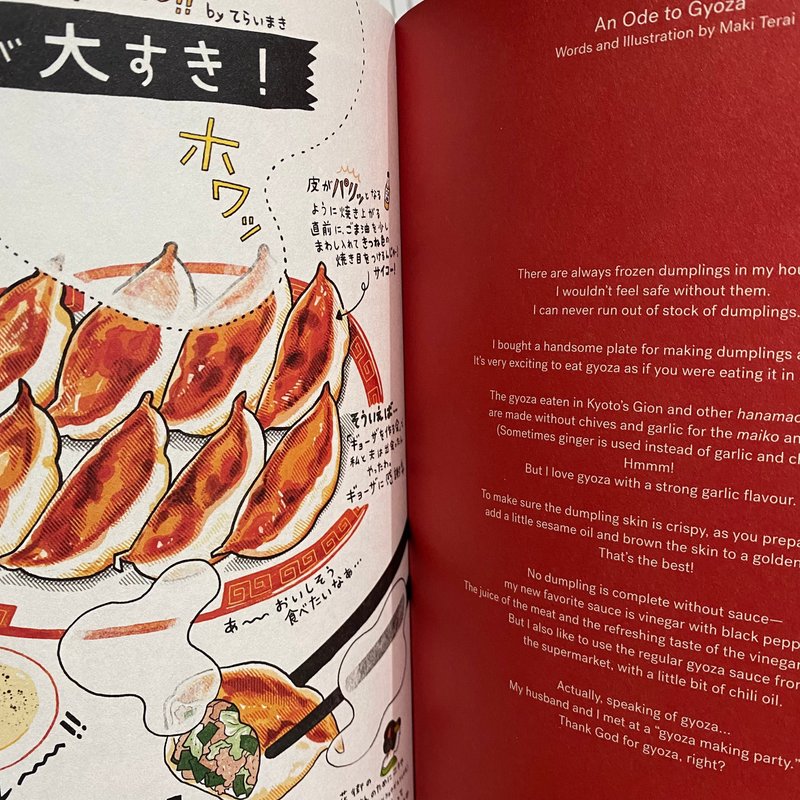 by てらいまき
が 大すき!
ホワッ
皮がパリッとなる
ように焼き上がる
直前に、ごま油を少し
まわし入れてきつね色の
焼き目をつけるんじゃー!
サイコー!
そういえば…
ギョーザを作る会で
私と夫は出会った
やったわ。
ギョーザに感謝
あ〜〜 おいしそう
食べたいなぁ…
!!
An Ode to Gyoza
Words and Illustration by Maki Terai
There are always frozen dumplings in my hou
I wouldn't feel safe without them.
I can never run out of stock of dumplings.
I bought a handsome plate for making dumplings a
It's very exciting to eat gyoza as if you were eating it in
The gyoza eaten in Kyoto's Gion and other hanamac
are made without chives and garlic for the maiko an
(Sometimes ginger is used instead of garlic and ch
Hmmm!
But I love gyoza with a strong garlic flavour.
To make sure the dumpling skin is crispy, as you prepa
add a little sesame oil and brown the skin to a golden
That's the best!
No dumpling is complete without sauce—
my new favorite sauce is vinegar with black pepp
The juice of the meat and the refreshing taste of the vinegar
But I also like to use the regular gyoza sauce from
the supermarket, with a little bit of chili oil.
Actually, speaking of gyoza...
My husband and I met at a "gyoza making party."
Thank God for gyoza, right?